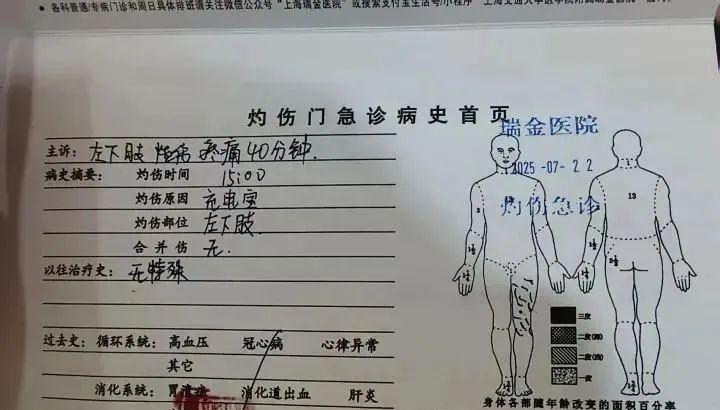 ● 各科普通/专病门诊和周日具体排班请关注微信公众号“上海瑞金医院”或搜索支付宝生活号/小程序“上海交通大学医学院附属瑞金医院
灼伤门急诊病史首页
瑞金医院
2025-07-22
灼伤急诊
主诉: 左下肢 疼痛40分钟.
病史摘要: 灼伤时间 15:00
灼伤原因 充电宝
灼伤部位 左下肢.
合并伤 无.
以往治疗史: 无特殊
过去史: 循环系统: 高血压 冠心病 心律异常
其它
消化系统: 胃溃疡 消化道出血 肝炎
13
三度
二度(深)
二度(浅)
一度
身体各部随年龄改变的面积百分率